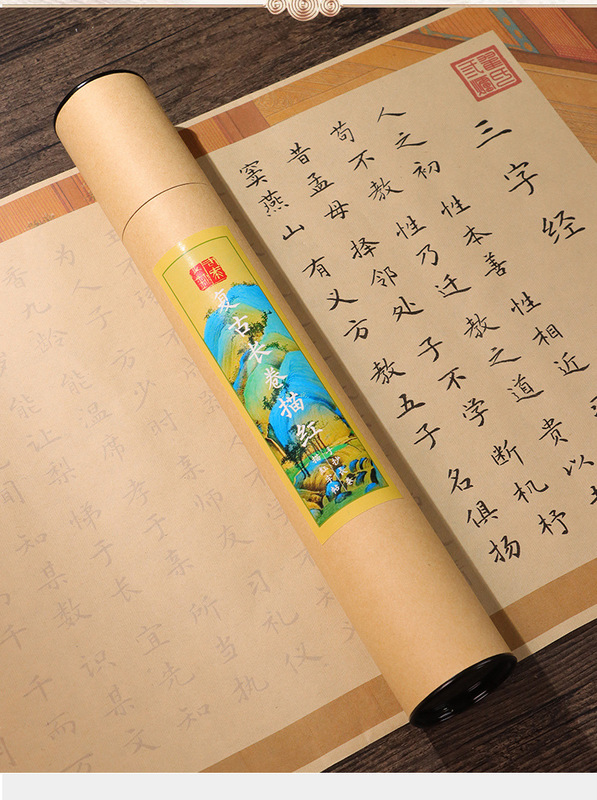 三字经
人之初性本善性相近
苟不教性乃迁教之道贵以
昔孟母择邻处子不学断机杼
窦燕山有义方教五子名俱扬
复古长卷描红
为人子方少时亲师友习礼仪
香九龄能温席孝于亲所当执
悌于长宜先知
闻知某数识某文
千千而万